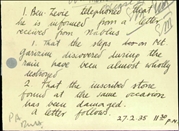 I. Ben-Zevie telephoned that
he is informed from a letter
received from Rhodos
1. that the
discovered during the
rains have been almost wholly
destroyed
2. that the inscribed stone
found at the same occasion
has been damaged.
a letter follows.
27.2.35